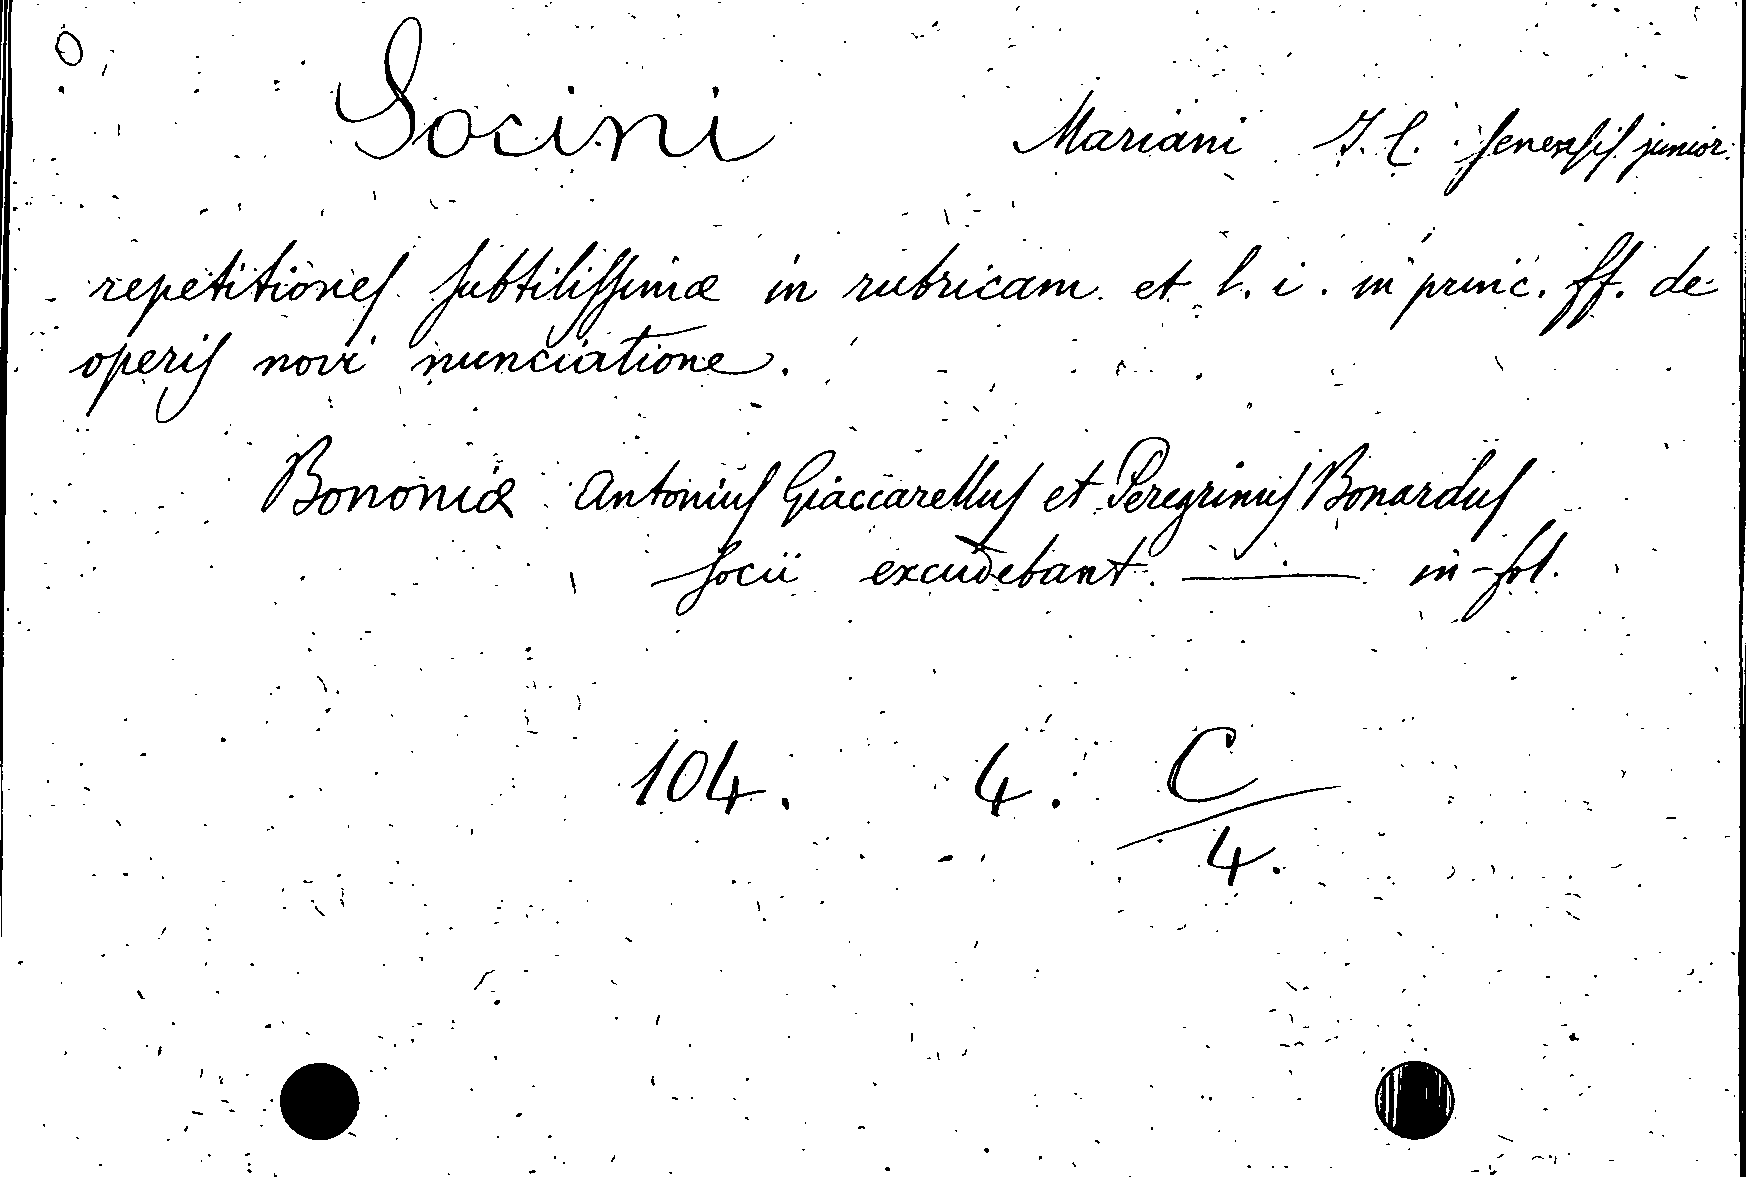 O
Socini Mariani J. C. senensis junior.
repetitiones subtilissimæ in rubricam et l. i. in princ. ff. de
operis novi nunciatione.
Bononiæ Antonius Giaccarellus et Peregrinus Bonardus
socii excudebant. — in-fol.
104. 4. C
4.